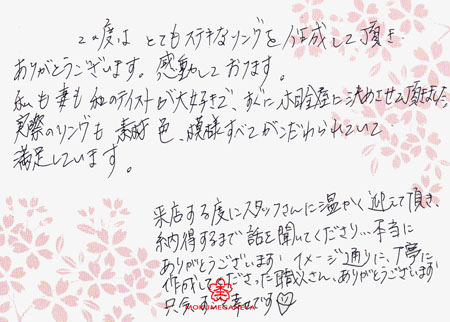 この度は とてもステキなリングを作成して頂き
ありがとうございます。感動しております。
私も妻も和のテイストが大好きで、すぐに杢目金屋に決めさせて頂きました。
実際のリングも 素材 色、模様すべてがこだわられていて
満足しています。
来店する度にスタッフさんに温かく迎えて頂き、
納得するまで話を聞いてくださり…本当に
ありがとうございます! イメージ通りに、丁寧に
作成してくださった職人さん、ありがとうございます!
幸せです♡
MOKUMEGANEYA